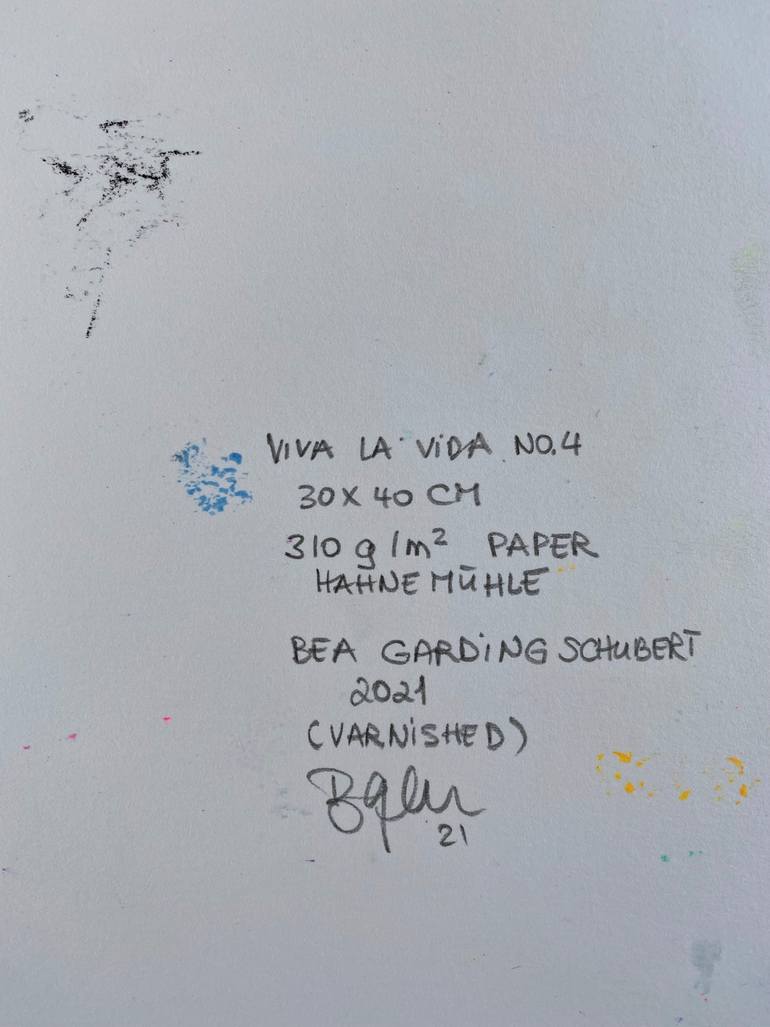 VIVA LA VIDA NO.4
30 X 40 CM
310 g/m² PAPER
HAHNEMÜHLE
BEA GARDING SCHUBERT
2021
(VARNISHED)
21